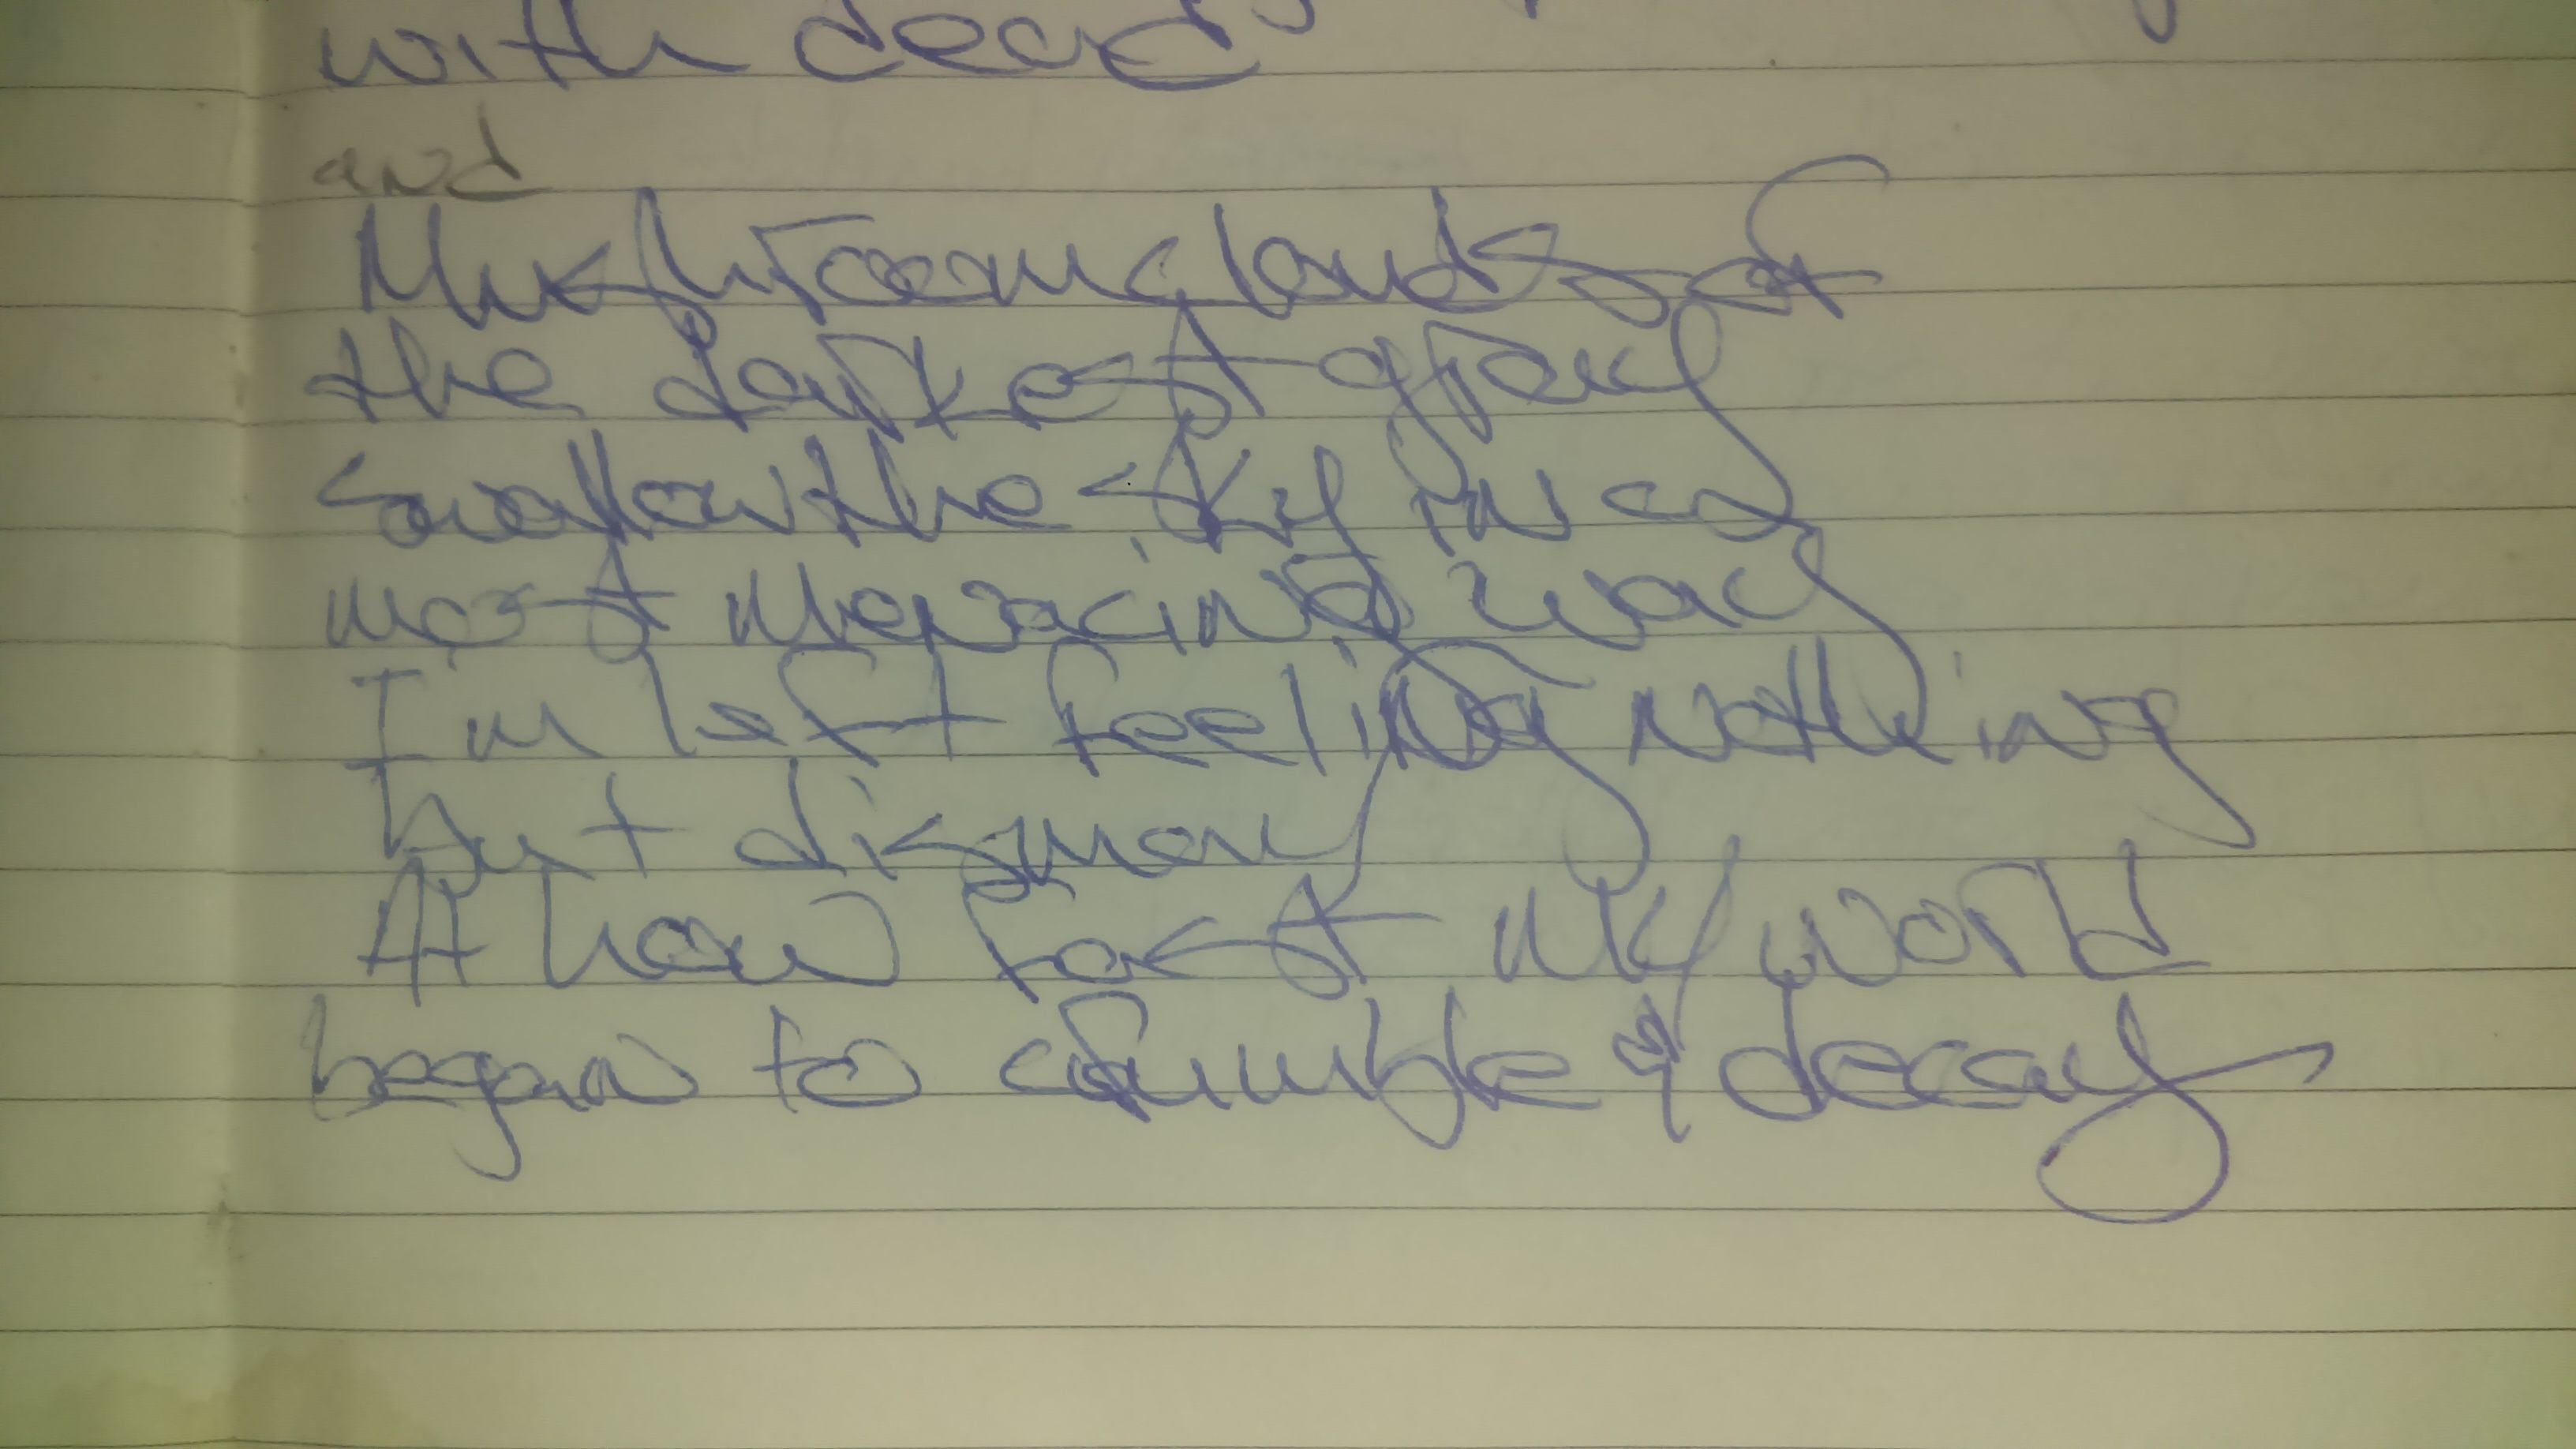 with dead
and
Mushroom clouds of
the darkest gray
swallow the sky in a
most menacing way
I'm left feeling nothing
but dismay
At how fast my world
began to crumble & decay